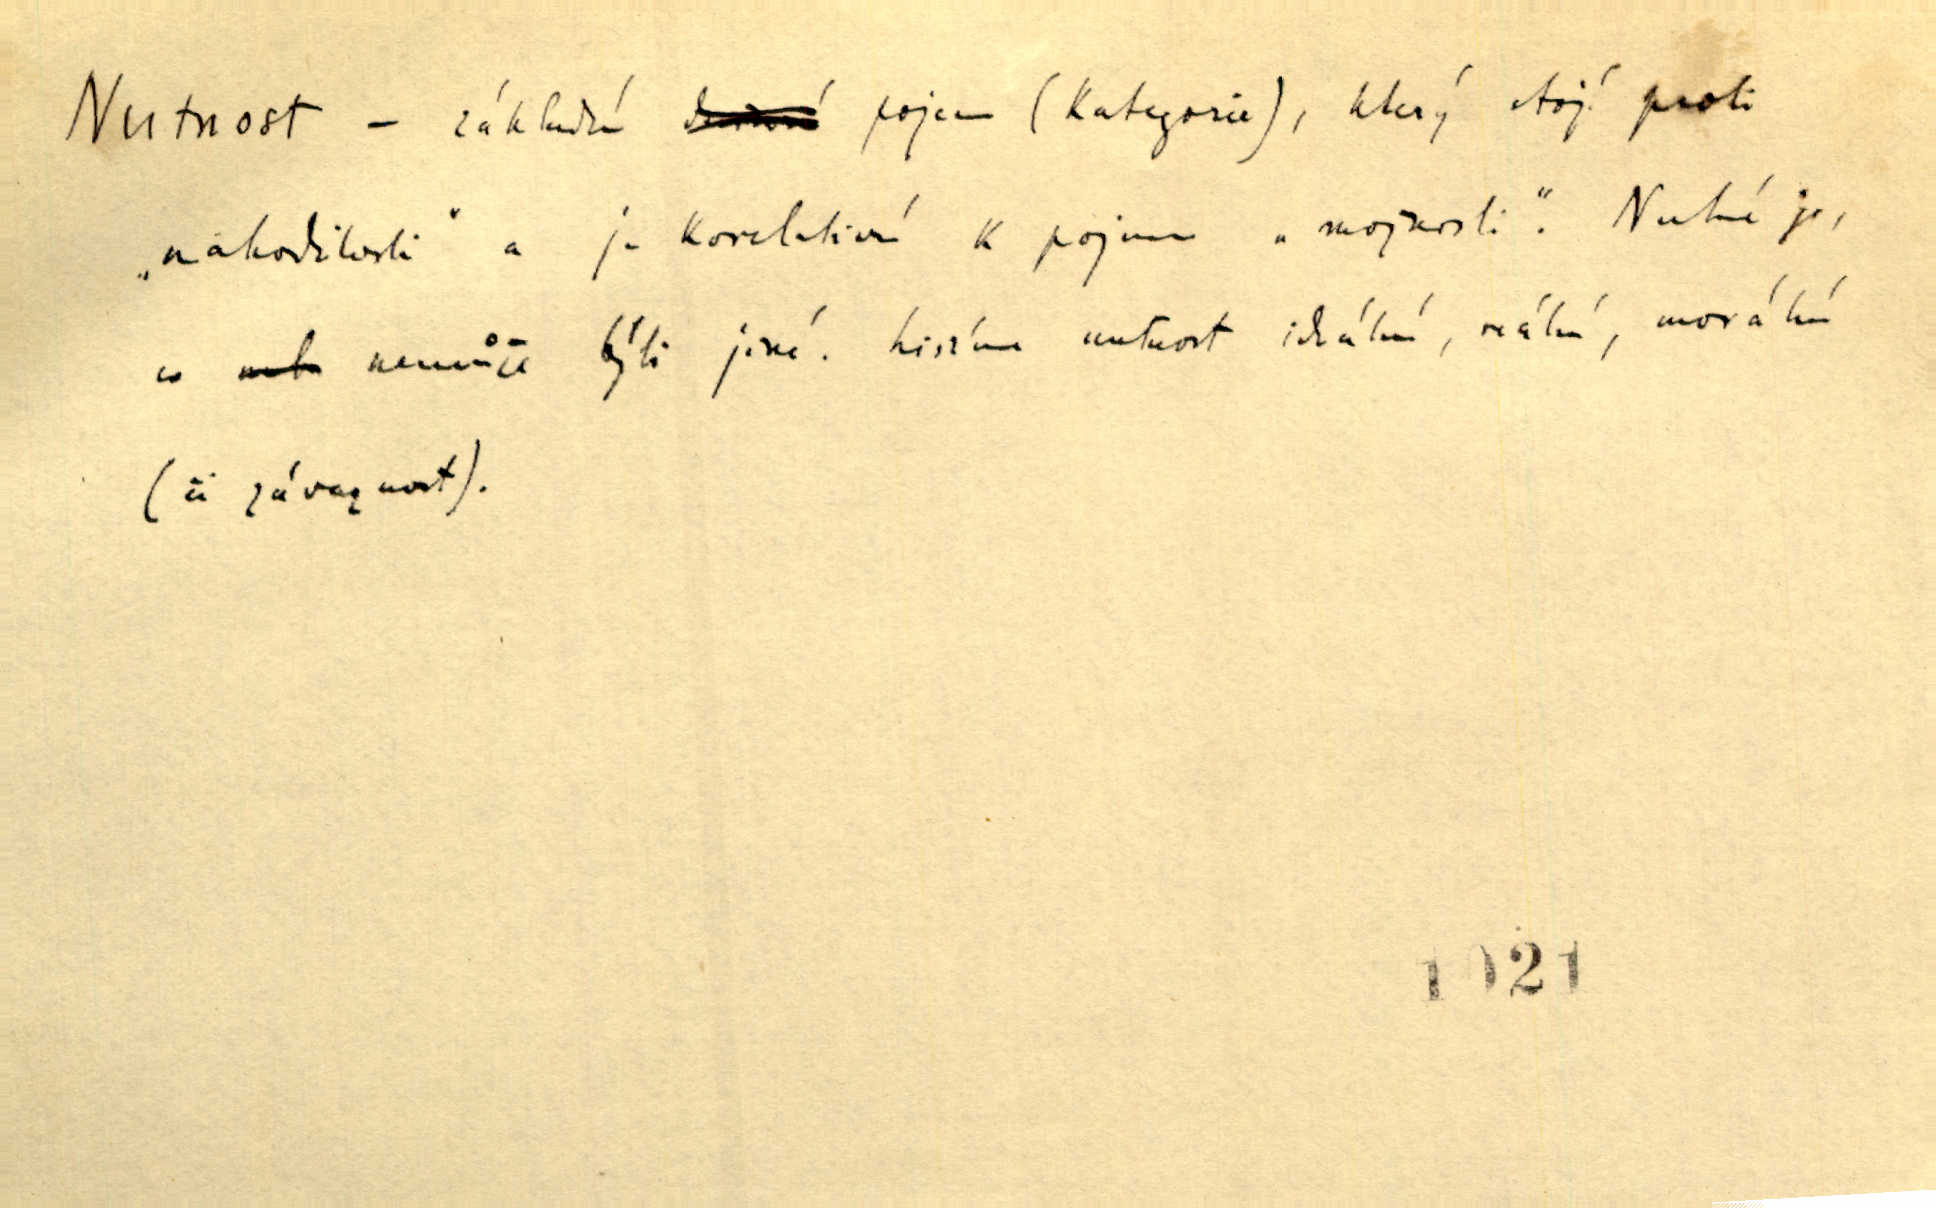 Nutnost – základní pojem (kategorie), který stojí proti
„nahodilosti" a je korelativní k pojmu „možnosti". Nutné je,
co nemůže býti jiné. Lišíme nutnost ideální, reální, morální
(či závaznost).
1021